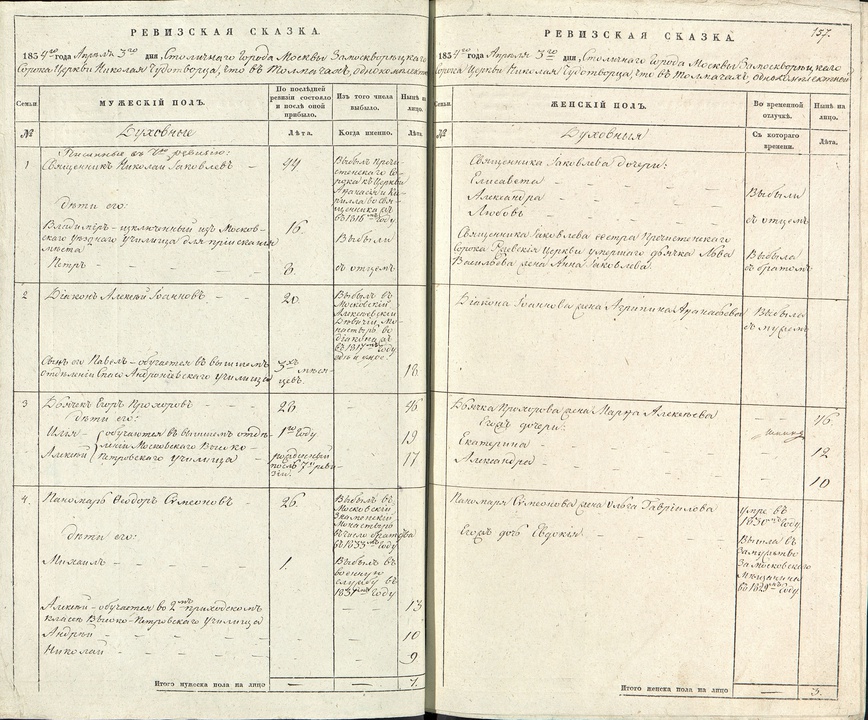 РЕВИЗСКАЯ СКАЗКА.
1834го года Апреля 3го дня, Столичнаго Города Москвы Замоскворецкаго
Сорока Церкви Николая Чудотворца, что въ Толмачахъ, однокомплектной
Семьи
МУЖЕСКІЙ ПОЛЪ.
По последней ревизіи состояло и послѣ оной прибыло.
Изъ того числа выбыло.
Нынѣ на лицо.
№
Духовные
Лѣта.
Когда именно.
Лѣта.
Писанные въ 7ю ревизію:
1 Священникъ Николай Іаковлевъ 44
Выбылъ Пречистенскаго Сорока къ Церкви Афанасія и Кирилла во священника въ 1816мъ году
дѣти его:
Владимиръ - исключенный изъ Московскаго уѣзднаго училища для пріисканія мѣста 16. Выбыли
Петръ 8. съ отцемъ
2 Діаконъ Алексѣй Іоанновъ 20.
Выбылъ въ Московскій Алексѣевскій Дѣвичій Монастырь во діакона въ 1817мъ году
Сынъ его Павелъ - обучается въ высшемъ отдѣленіи Спасо Андроніевскаго училища 3хъ мѣсяцевъ. 18.
3 Дьячекъ Егоръ Прохоровъ 28 46
дѣти его:
Илья 1го году 19
Алексѣй рожденный послѣ 7й ревизіи. 17
обучаются въ высшемъ отдѣленіи Московскаго Высоко-Петровскаго училища
4. Пономарь Ѳеодоръ Сѵмеоновъ 26.
Выбылъ въ Московскій Знаменскій Монастырь въ число братства въ 1833мъ году
дѣти его:
Михаилъ 1.
Выбылъ въ военную службу въ 1831мъ году
Алексѣй - обучается во 2мъ приходскомъ классѣ Высоко-Петровскаго училища 13
Андрей 10
Николай 9
Итого мужеска пола на лицо 7.
РЕВИЗСКАЯ СКАЗКА.
157.
1834го года Апреля 3го дня, Столичнаго Города Москвы Замоскворецкаго
Сорока Церкви Николая Чудотворца, что въ Толмачахъ, однокомплектной
Семьи
ЖЕНСКІЙ ПОЛЪ.
Во временной отлучкѣ.
Нынѣ на лицо.
№
Духовныя
Съ котораго времени.
Лѣта.
Священника Іаковлева дочери:
Елисавета
Александра Выбыли
Любовь съ отцемъ
Священника Іаковлева сестра Пречистенскаго
Сорока Церкви умершаго дьячка Льва Выбыла
Васильева жена Анна Іаковлева. съ братомъ
Діакона Іоаннова жена Агрипина Афанасьева Выбыла съ мужемъ
Дьячка Прохорова жена Марфа Алексѣева 46.
Егожъ дочери:
Екатерина 12
Александра 10
Пономаря Сѵмеонова жена Ольга Гавріилова
умре въ 1830мъ году
Егожъ дочь Евдокія
Вышла въ замужство за Московскаго Мѣщанина въ 1829мъ году
Итого женска пола на лицо 3.